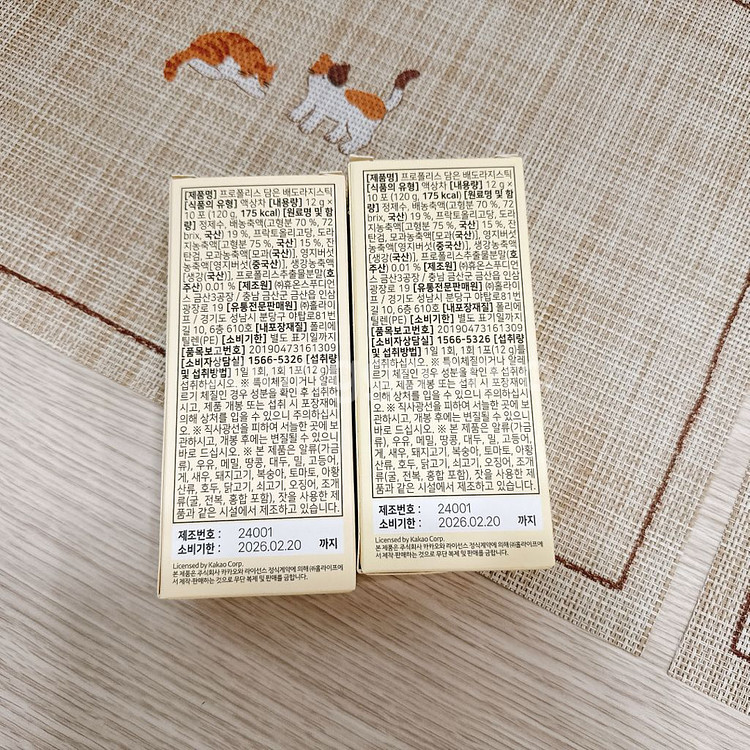 [제품명] 프로폴리스 담은 배도라지스틱
[식품의 유형] 액상차 [내용량] 12 g ×
10 포 (120 g, 175 kcal) [원료명 및 함
량] 정제수, 배농축액(고형분 70 %, 72
brix, 국산) 19 %, 프락토올리고당, 도라
지농축액[고형분 75 %, 국산] 15 %, 잔
탄검, 모과농축액[모과(국산)], 영지버섯
농축액[영지버섯(중국산)], 생강농축액
[생강(국산)], 프로폴리스추출물분말(호
주산) 0.01 % [제조원] ㈜휴온스푸디언
스 금산3공장 / 충남 금산군 금산읍 인삼
광장로 19 [유통전문판매원] ㈜홀라이
프 / 경기도 성남시 분당구 야탑로81번
길 10, 6층 610호 [내포장재질] 폴리에
틸렌(PE) [소비기한] 별도 표기일까지
[품목보고번호] 20190473161309
[소비자상담실] 1566-5326 [섭취량
및 섭취방법] 1일 1회, 1회 1포(12 g)를
섭취하십시오. ※ 특이체질이거나 알레
르기 체질인 경우 성분을 확인 후 섭취하
시고, 제품 개봉 또는 섭취 시 포장재에
의해 상처를 입을 수 있으니 주의하십시
오. ※ 직사광선을 피하여 서늘한 곳에 보
관하시고, 개봉 후에는 변질될 수 있으니
바로 드십시오. ※ 본 제품은 알류(가금
류), 우유, 메밀, 땅콩, 대두, 밀, 고등어,
게, 새우, 돼지고기, 복숭아, 토마토, 아황
산류, 호두, 닭고기, 쇠고기, 오징어, 조개
류(굴, 전복, 홍합 포함), 잣을 사용한 제
품과 같은 시설에서 제조하고 있습니다.
제조번호 : 24001
소비기한 : 2026.02.20 까지
Licensed by Kakao Corp.
본 제품은 주식회사 카카오와 라이선스 정식계약에 의해 ㈜홀라이프에
서 제작·판매하는 것으로 무단 복제 및 판매를 금합니다.
[제품명] 프로폴리스 담은 배도라지스틱
[식품의 유형] 액상차 [내용량] 12 g ×
10 포 (120 g, 175 kcal) [원료명 및 함
량] 정제수, 배농축액(고형분 70 %, 72
brix, 국산) 19 %, 프락토올리고당, 도라
지농축액[고형분 75 %, 국산] 15 %, 잔
탄검, 모과농축액[모과(국산)], 영지버섯
농축액[영지버섯(중국산)], 생강농축액
[생강(국산)], 프로폴리스추출물분말(호
주산) 0.01 % [제조원] ㈜휴온스푸디언
스 금산3공장 / 충남 금산군 금산읍 인삼
광장로 19 [유통전문판매원] ㈜홀라이
프 / 경기도 성남시 분당구 야탑로81번
길 10, 6층 610호 [내포장재질] 폴리에
틸렌(PE) [소비기한] 별도 표기일까지
[품목보고번호] 20190473161309
[소비자상담실] 1566-5326 [섭취량
및 섭취방법] 1일 1회, 1회 1포(12 g)를
섭취하십시오. ※ 특이체질이거나 알레
르기 체질인 경우 성분을 확인 후 섭취하
시고, 제품 개봉 또는 섭취 시 포장재에
의해 상처를 입을 수 있으니 주의하십시
오. ※ 직사광선을 피하여 서늘한 곳에 보
관하시고, 개봉 후에는 변질될 수 있으니
바로 드십시오. ※ 본 제품은 알류(가금
류), 우유, 메밀, 땅콩, 대두, 밀, 고등어,
게, 새우, 돼지고기, 복숭아, 토마토, 아황
산류, 호두, 닭고기, 쇠고기, 오징어, 조개
류(굴, 전복, 홍합 포함), 잣을 사용한 제
품과 같은 시설에서 제조하고 있습니다.
제조번호 : 24001
소비기한 : 2026.02.20 까지
Licensed by Kakao Corp.
본 제품은 주식회사 카카오와 라이선스 정식계약에 의해 ㈜홀라이프에
서 제작·판매하는 것으로 무단 복제 및 판매를 금합니다.